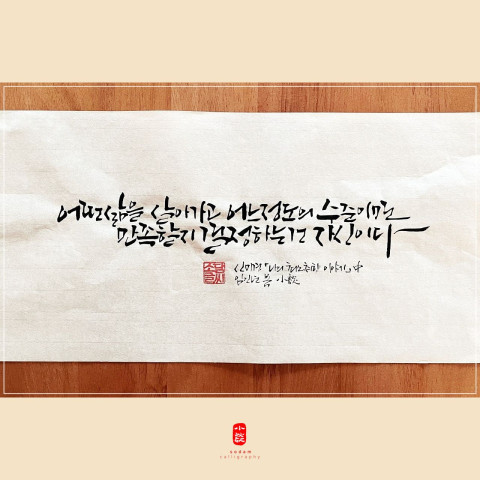 어떤 삶을 살아가고 어느정도의 수준이면
만족할지 결정하는건 자신이다
신미경 「나의 최소취향 이야기」中
임인년 봄 小談
小談
sodam
calligraphy